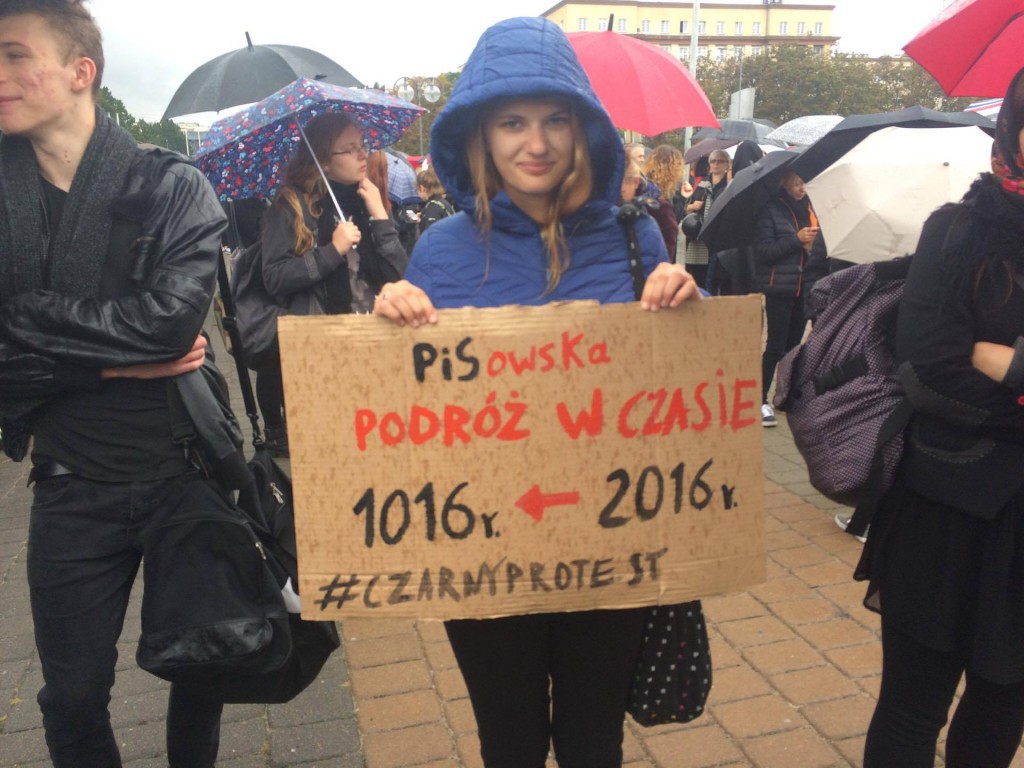 PiSowska
PODRÓŻ W CZASIE
1016r. ← 2016r.
#CZARNYPROTEST